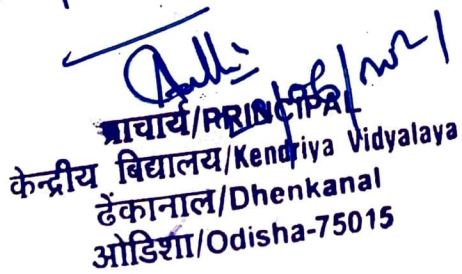 प्राचार्य/PRINCIPAL
केन्द्रीय बिद्यालय/Kendriya Vidyalaya
ढेंकानाल/Dhenkanal
ओडिशा/Odisha-75015